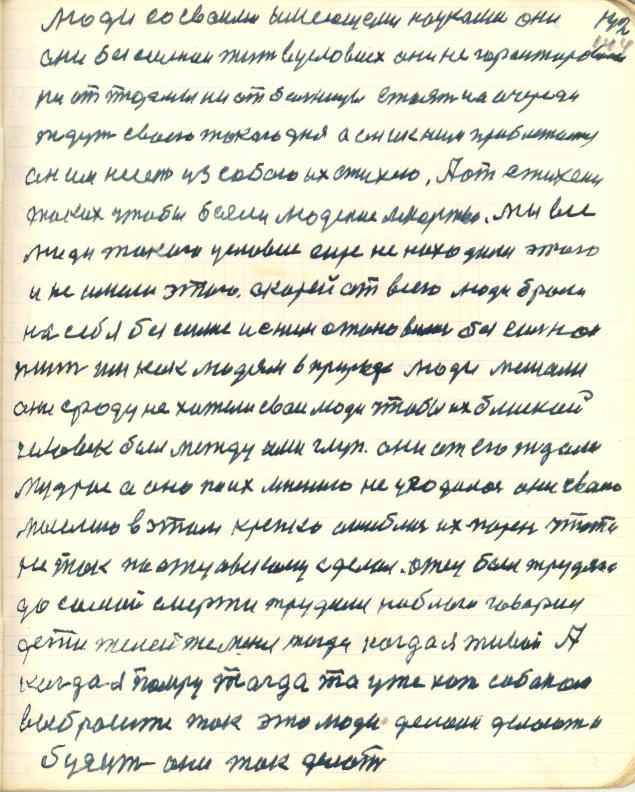 люди со своими имеющими науками они 192
они бессилнаи жит вусловиях они не гарантировани
ни от тюрмы ни от болницы стоят на очереди
ждут своего такого дня а он и к ним приблежаит
он им несет из собою их стихею. А от стихеии
таких чтобы были людские лекарства. Мы все
люди такого условие еще не находили этого
и не имели этого. скорей от всего люди брали
на себя бессилие и сним становилис бессилнаи
жит им как людям в природе люди мешали
они сроду не хотели сваи люди чтобы их близкай
человек был между ими глуп. они от его ждали
мудрое а оно по их мнению не уходилос они свато
мыслию в этом крепко ошиблис их парен чтото
не так по отцувскому сделал. отец был трудяга
до самой смерти трудился на благо говорил
дети жалей те меня тогда когда я живой А
когда я помру тогда та уже хот собакам
выброситя так это люди делали делают и
будут они так делат